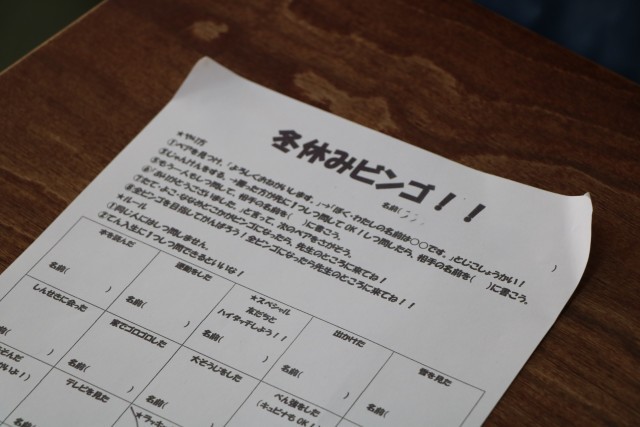 冬休みビンゴ！！
名前(
)
★やり方
①ペアを見つけ、「よろしくおねがいします。」→「ぼく・わたしの名前は○○です。」とじこしょうかい！
②じゃんけんをする。→勝った方が先に1つしつ問してOK！しつ問したら、相手の名前を(　　)に書こう。
③もう一人もしつ問して、相手の名前を(　　)に書こう。
④「ありがとうございました。」と言って、次のペアをさがそう。
⑤たて・よこ・ななめのどこかがビンゴになったら、先生のところに来てね！
⑥全ビンゴを目指してがんばろう！全ビンゴになったら先生のところに来てね！！
★ルール
①同じ人にはしつ問しません。
②てん入生に1つしつ問できるといいな！
本を読んだ
名前(　　)
運動をした
名前(　　)
★スペシャル
友だちと
ハイタッチしよう！！
名前(　　)
出かけた
名前(　　)
雪を見た
名前(
しんせきに会った
名前(　　)
家でゴロゴロした
名前(　　)
大そうじをした
名前(　　)
べん強をした
(キュビナもOK！)
テレビを見た
★ラッキー